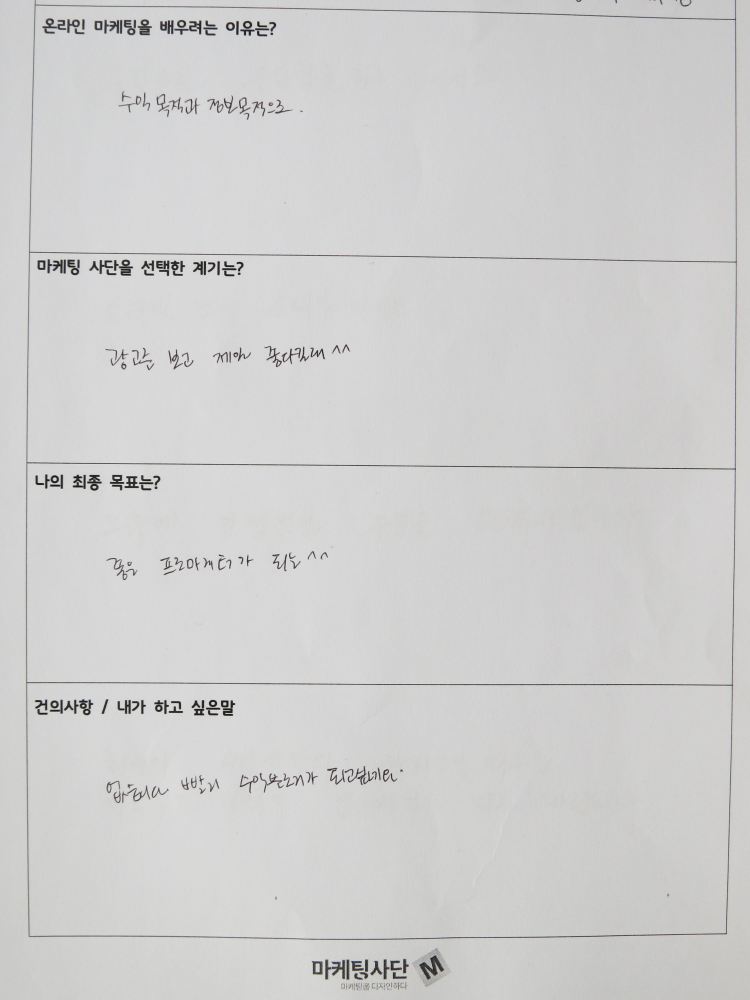 온라인 마케팅을 배우려는 이유는?
수익 목적과 정보목적으로.
마케팅 사단을 선택한 계기는?
광고를 보고 제일 좋다길래 ^^
나의 최종 목표는?
좋은 프로마케터가 되는 ^^
건의사항 / 내가 하고 싶은말
없습니다 빨리 수익
마케팅사단 M
마케팅을 디자인하다